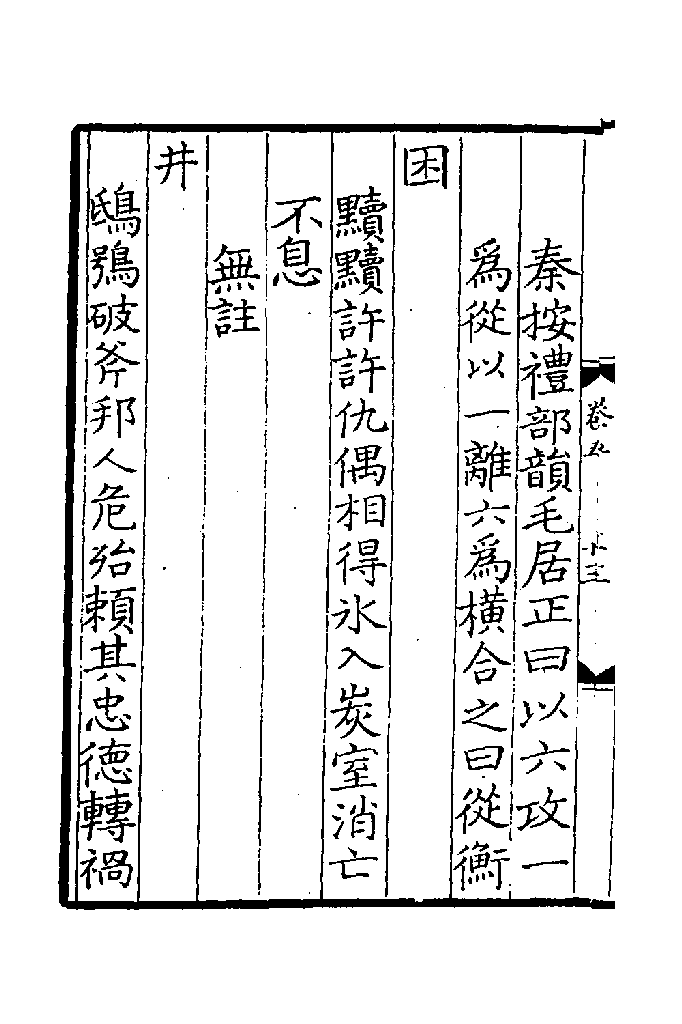 秦按禮部韻毛居正曰以六攻一
爲從以一離六爲橫合之曰從衡
困
黷黷許許仇偶相得氷入炭室消亡
不息
無註
井
鴟鴞破斧邦人危殆賴其忠德轉禍
卷五